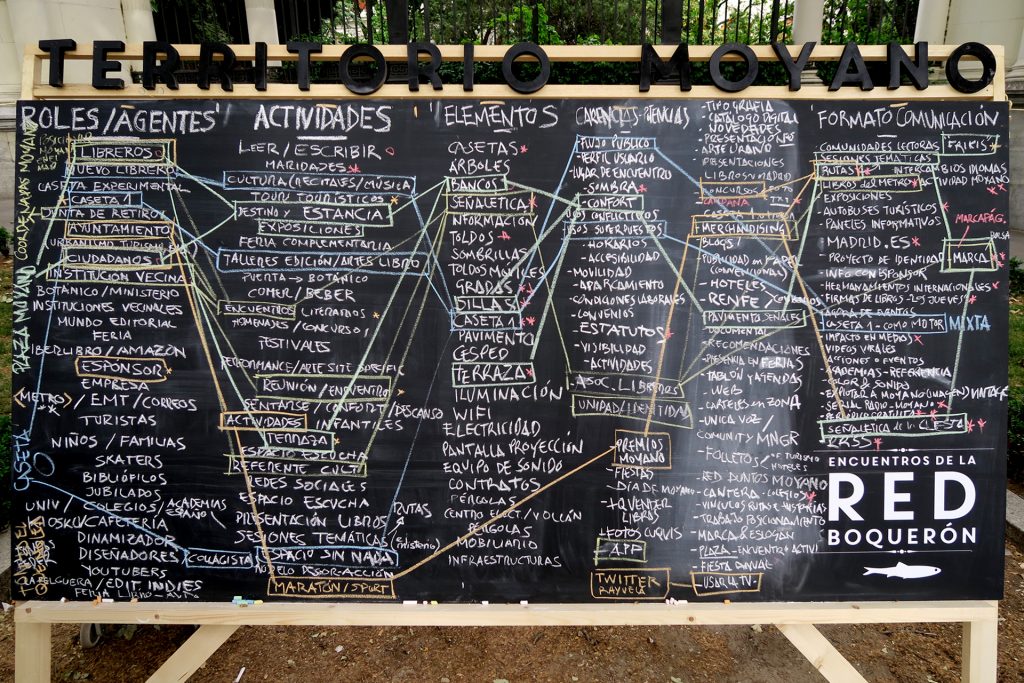 TERRITORIO MOYANO
ROLES/AGENTES'
LIBREROS
NUEVO LIBRERO
CASETA EXPERIMENTAL
CASETA 1
JUNTA DE RETIRO
AYUNTAMIENTO
URBANISMO TURISMO
CIUDADANOS
INSTITUCIÓN VECINA
BOTÁNICO/MINISTERIO
INSTITUCIONES VECINALES
MUNDO EDITORIAL
FERIA
IBERLIBRO/AMAZÓN
ESPONSOR
EMPRESA
<METRO>/EMT/CORREOS
TURISTAS
NIÑOS / FAMILIAS
SKATERS
BIBLIÓFILOS
JUBILADOS
UNIV / COLEGIOS/ACADEMIAS ESPAÑOL
KIOSKO/CAFETERÍA
DINAMIZADOR
DISEÑADORES
COLAGISTA
YOUTUBERS
/EDIT INDIES
PLAZA MOYANO
CASETA
ACTIVIDADES
LEER/ESCRIBIR
MARIDAJES
CULTURA (RECITALES/MÚSICA
TOUR TURÍSTICOS
DESTINO / ESTANCIA
EXPOSICIONES
FERIA COMPLEMENTARIA
TALLERES EDICIÓN/ARTES LIBRO
PUERTA → BOTÁNICO
COMER/BEBER
ENCUENTROS LITERARIOS
HOMENAJES/CONCURSOS/
FESTIVALES
PERFORMANCE/ARTE SITE SPECIFIC
REUNIÓN/ENCUENTRO
SENTARSE/CONFORT/DESCANSO
ACTIVIDADES INFANTILES
TERRAZA
ESPACIO ESCUCHA
REFERENTE CULT
REDES SOCIALES
ESPACIO ESCUCHA
PRESENTACIÓN LIBROS
RUTAS
SESIONES TEMÁTICAS
(misterio)
ESPACIO SIN NADA
MODELO DESOR-ACCIÓN
MARATÓN/SPORT
'ELEMENTOS
CASETAS
ÁRBOLES
BANCOS
SEÑALÉTICA
INFORMACIÓN
TOLDOS
SOMBRILLAS
TOLDOS MÓVILES
GRADAS
SILLAS
CASETA 1
PAVIMENTO
CESPED
TERRAZA
ILUMINACIÓN
WIFI
ELECTRICIDAD
PANTALLA PROYECCIÓN
EQUIPO DE SONIDO
CONTRATOS
PÉRGOLAS
CENTRO ELECT/VOLCÁN
PÉRGOLAS
MOBILIARIO
INFRAESTRUCTURAS
FLUJO PÚBLICO
-PERFIL USUARIO
-LUGAR DE ENCUENTRO
-SOMBRA
-CONFORT
USOS CONFLICTIVOS
USOS SUPERPUESTOS
-HORARIOS
-ACCESIBILIDAD
-MOVILIDAD
-APARCAMIENTO
-CONDICIONES LABORALES
-CONVENIOS
-ESTATUTOS
-VISIBILIDAD
-ACTIVIDADES
-ASOC. LIBREROS
UNIDAD/IDENTIDAD
PREMIOS MOYANO
-FIESTAS
-DÍA DE MOYANO
-LEOTOS CUQUIS
APP
TWITTER
RAYUELA
-TIPOGRAFÍA
-CATÁLOGO DIGITAL
NOVEDADES
-ARTE URBANO
-PRESENTACIONES
CONCURSOS
CAMPAÑA
MERCHANDISING
BLOGS/
-HOTELES
-RENFE/
PAVIMENTO SEÑALES
DOCUMENTAL
-RECOMENDACIONES
-PRESENCIA EN FERIAS
-TABLÓN Y AGENDAS
-WEB
-CARTELES EN ZONA
-UNICA VOZ/
COMUNITY MNGR
-FOLLETOS
OF TURISMO
HOTELES
-RED PUNTOS MOYANO
-CANTERA-COLEGIOS
-VÍNCULOS RUTAS E HISTORIAS
-TRABAJO POSICIONAMIENTO
-MARCA & ESLOGAN
-PLAZA-ENCUENTRO ACTIVI
-FIESTA ANUAL
-USAR LA TV-
'FORMATO COMUNICACIÓN
COMUNIDADES LECTORAS
SESIONES TEMÁTICAS
RUTAS
INTERCAMBIOS IDIOMAS
LIBROS DEL METRO
ACTIVIDAD MOYANO
EXPOSICIONES
-AUTOBUSES TURÍSTICOS
-PANELES INFORMATIVOS
-MADRID.ES
-PROYECTO DE IDENTIDAD
MARCAPÁG.
MARCA
BOLSA
-INFO CON BIPSONOR
-HERMANAMIENTOS INTERNACIONALES
-FIRMAS DE LIBROS-LOS JUEVES
AGENDA DE EVENTOS
CASETA 1-COMO MOTOR MIXTA
IMPACTO EN MEDIOS
VIDEOS VIRALES
ACCIONES O EVENTOS
-ACADEMIAS-REFERENCIA
-COLOR & SONIDO
-SEÑAL RADIO-MOYANO
SEÑALÉTICA de la CUESTA
-RRSS
ENCUENTROS DE LA
RED
BOQUERÓN